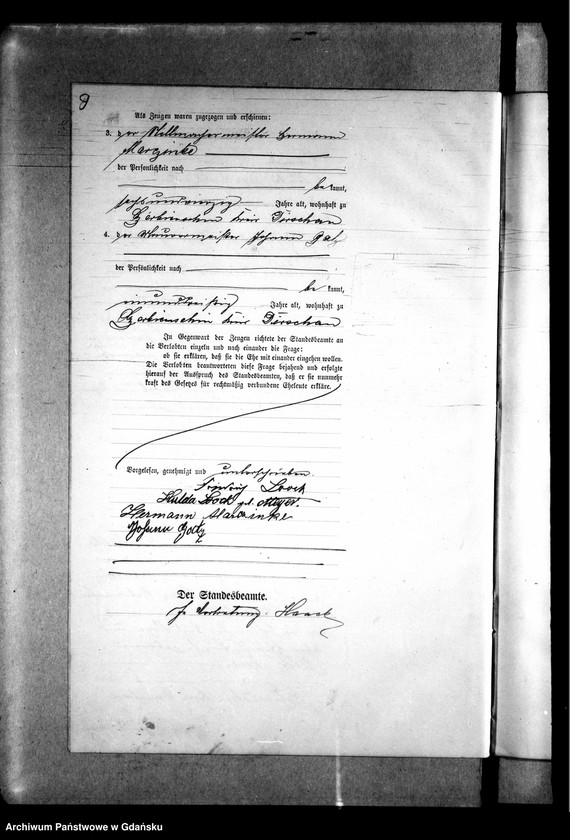 Als Zeugen waren zugezogen und erschienen:
3. der Stellmachermeister Hermann
Marzinke
der Persönlichkeit nach
bekannt,
Jahre alt, wohnhaft zu
Kreis Dirschau
4. der Maurermeister Johann
der Persönlichkeit nach
bekannt,
Jahre alt, wohnhaft zu
Kreis Dirschau
In Gegenwart der Zeugen richtete der Standesbeamte an
die Verlobten einzeln und nach einander die Frage:
ob sie erklären, daß sie die Ehe mit einander eingehen wollen.
Die Verlobten beantworteten diese Frage bejahend und erfolgte
hierauf der Ausspruch des Standesbeamten, daß er sie nunmehr
kraft des Gesetzes für rechtmäßig verbundene Eheleute erkläre.
Vorgelesen, genehmigt und unterschrieben.
Friedrich Look
Hulda Look geb. Meyer.
Hermann Marzinke
Johann
Der Standesbeamte.
In Vertretung
Archiwum Państwowe w Gdańsku